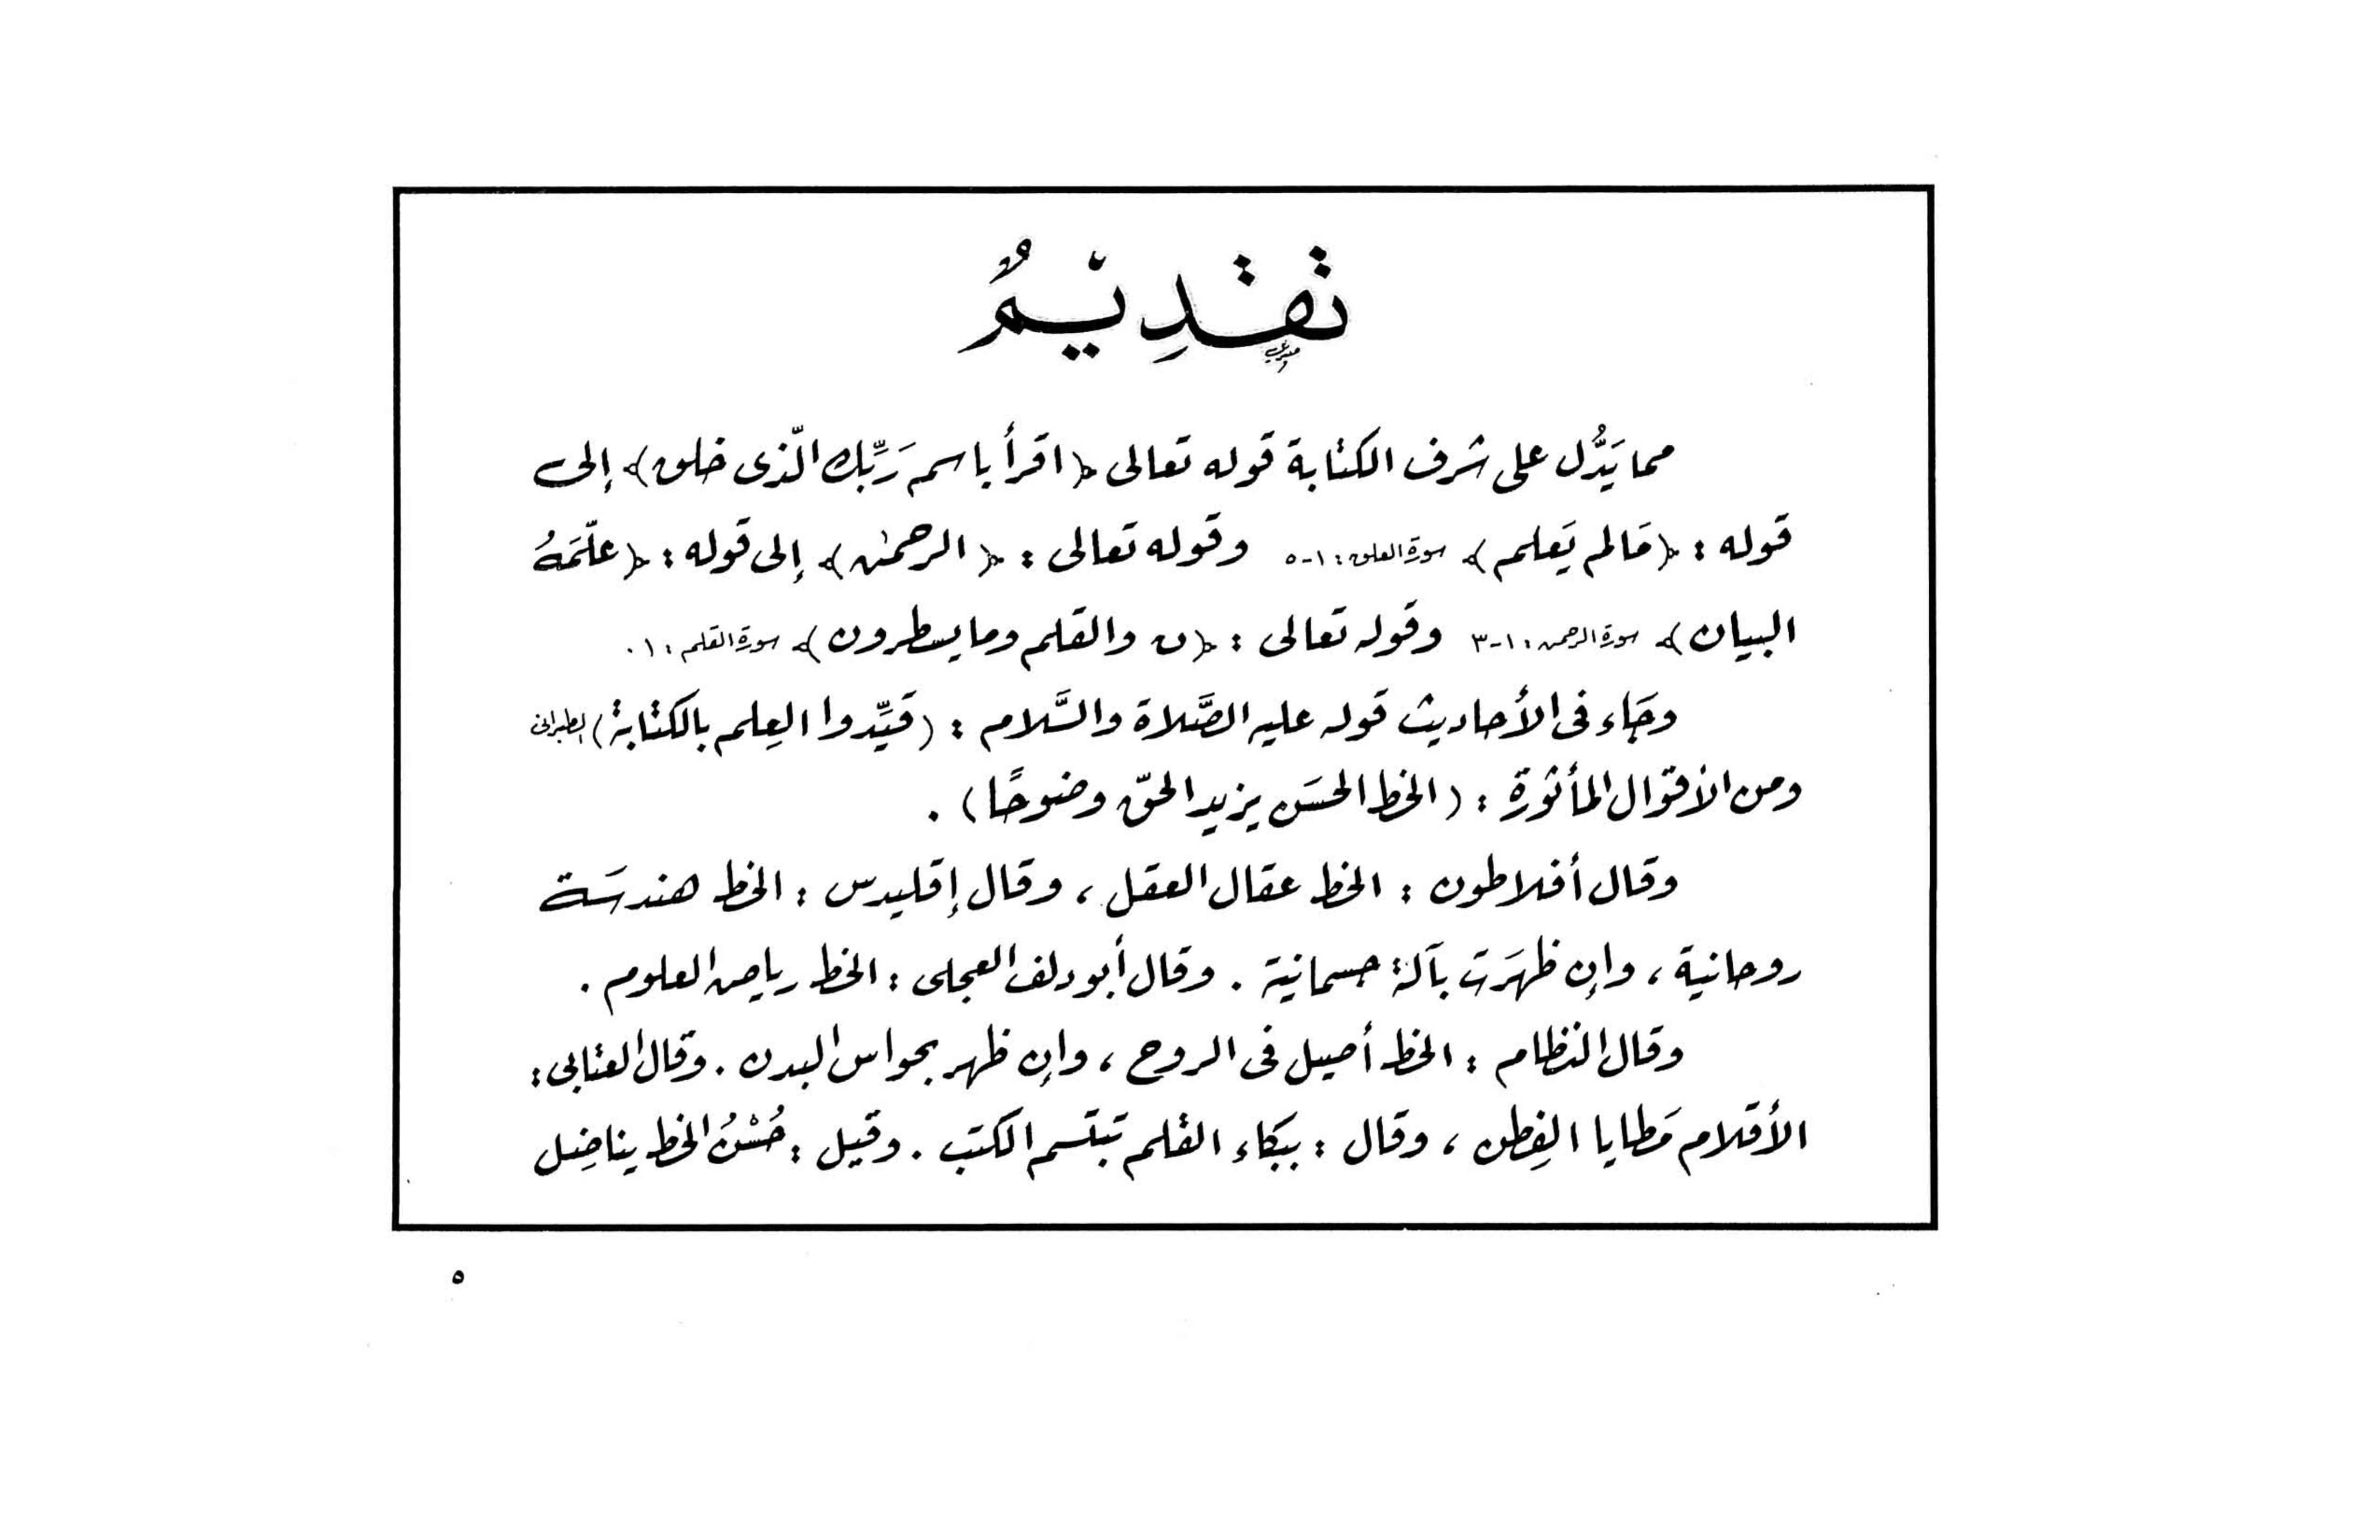 تقديم
مما يَدُّل على شرف الكتابة قوله تعالى ﴿اقرأ باسم رَبِّك الّذى خلق﴾ إلى
قوله : ﴿مَالم يَعلم﴾ سورة العلق : ١-٥ وقوله تعالى : ﴿الرحمٰن﴾ إلى قوله : ﴿علّمَهُ
البيان﴾ سورة الرحمن : ١-٣ وقوله تعالى : ﴿ن والقلم وما يسطرون﴾ سورة القلم : ١ .
وجَاء فى الأحاديث قوله عليه الصَّلاة والسَّلام : (قيِّدوا العِلم بالكتابة) الطبرانى
ومن الأقوال المأثورة : (الخط الحسَن يزيد الحقّ وضوحًا) .
وقال أفلاطون : الخط عقال العقل ، وقال إقليدس : الخط هندسَة
روحانية ، وإن ظهرَت بآلة جسمانية . وقال أبو دلف العجلى : الخط رياض العلوم .
وقال النظام : الخط أصيل فى الروح ، وإن ظهر بحواس البدن . وقال العتابى :
الأقلام مَطايا الفِطن ، وقال : ببكاء القلم تبتسم الكتب . وقيل : حُسْنُ الخط يناضِل
٥